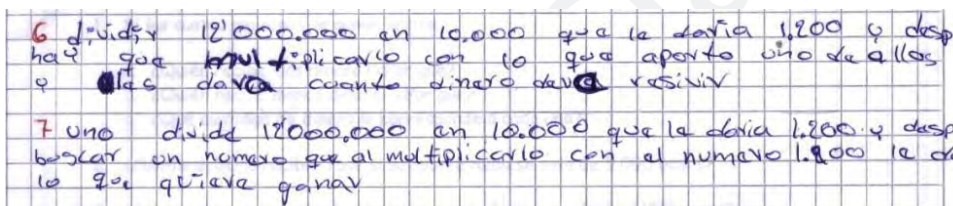 6 dividir 12'000.000 en 10.000 que le daria 1,200 y desp
hay que multiplicarlo con lo que aporto uno de ellos
y les dara cuanto dinero deve resivir
7 uno divide 12000.000 en 10.000 que le daria 1.200. y desp
boscar un numero que al moltiplicarlo con el numero 1.200 le d
lo que qciere ganar